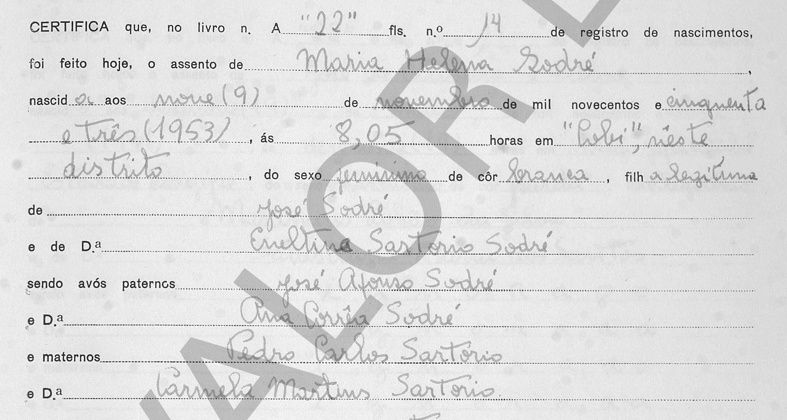 CERTIFICA que, no livro n. A "22" fls. n.º 14 de registro de nascimentos,
foi feito hoje, o assento de Maria Helena Sodré,
nascida aos nove (9) de novembro de mil novecentos e cinquenta
e três (1953), ás 8,05 horas em neste
distrito, do sexo feminino de côr branca, filha legitima
de José Sodré
e de D.ª Eneltina Sartorio Sodré
sendo avós paternos José Afonso Sodré
e D.ª Ana Corrêa Sodré
e maternos Pedro Carlos Sartorio
e D.ª Carmela Martins Sartorio
VALOR